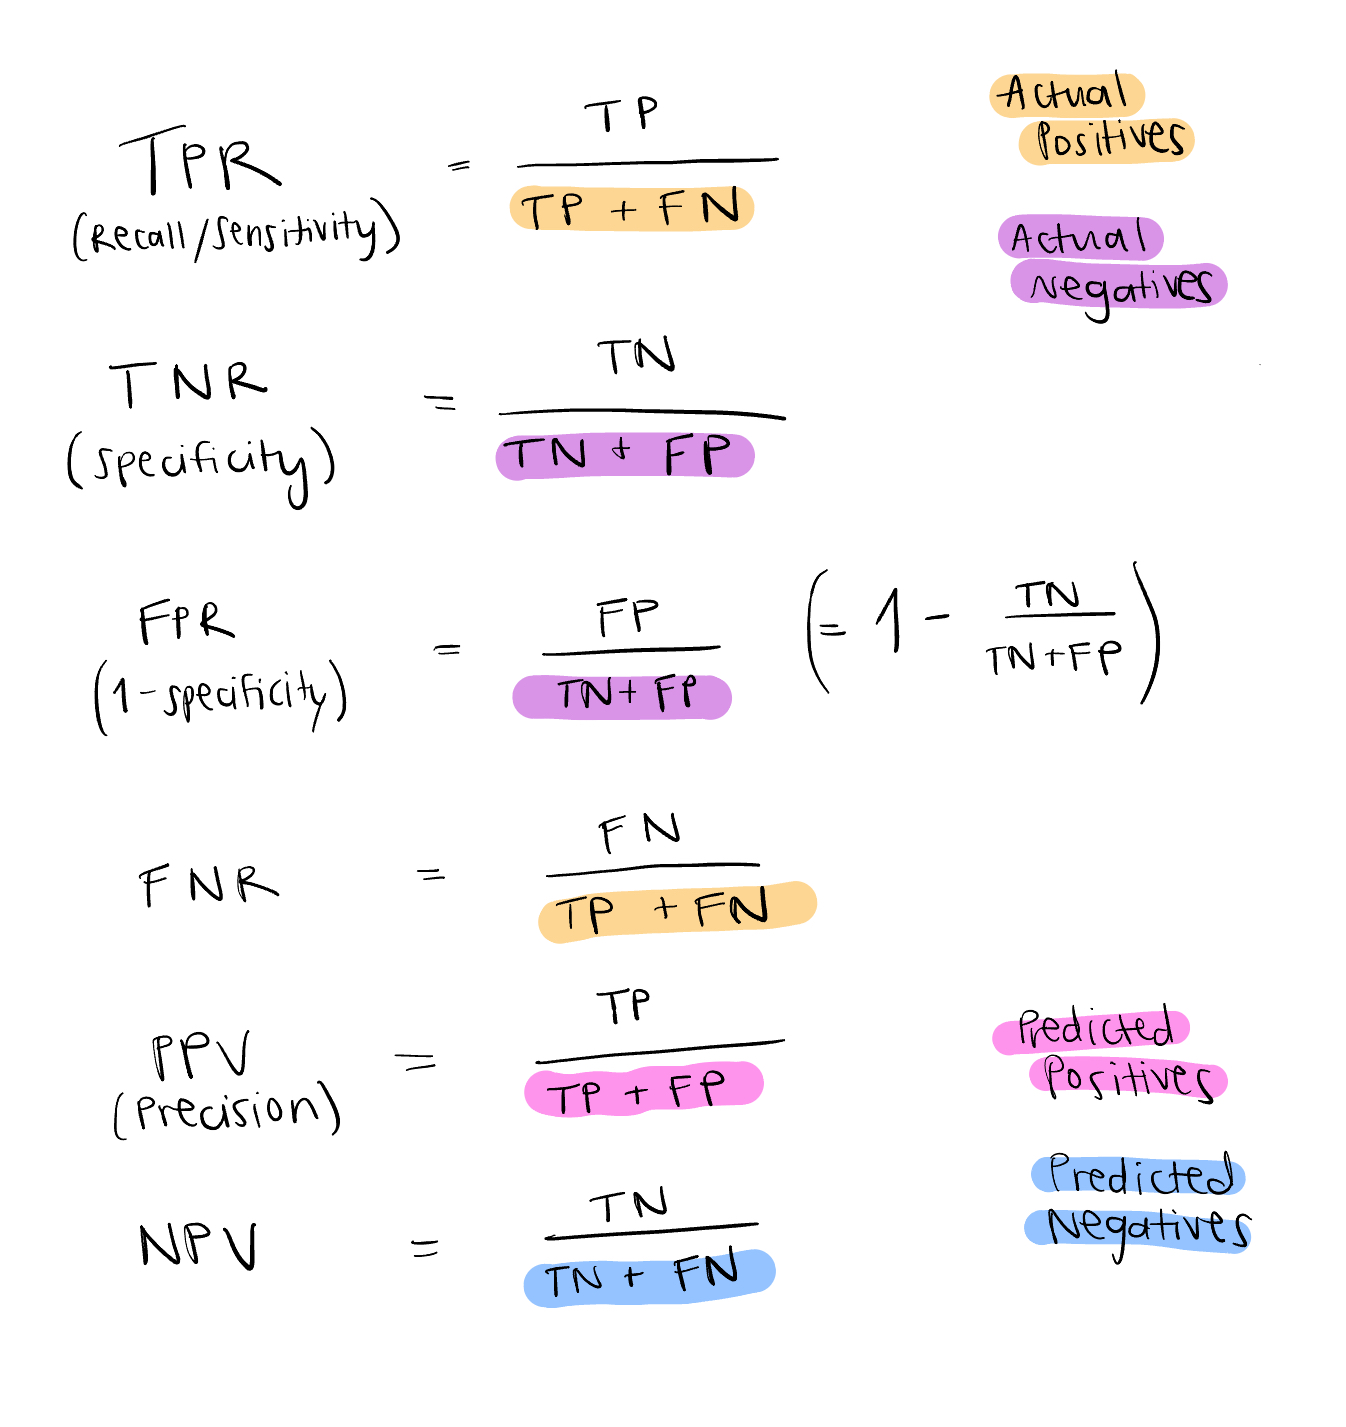 TP
Actual
TPR = ――― Positives
(Recall/Sensitivity) TP + FN
Actual
Negatives
TN
TNR = ―――
(specificity) TN + FP
FPR = FP / TN + FP (= 1 - TN / TN+FP)
(1-specificity)
FNR = FN / TP + FN
PPV = TP / TP + FP
(Precision)
Predicted
Positives
NPV = TN / TN + FN
Predicted
Negatives